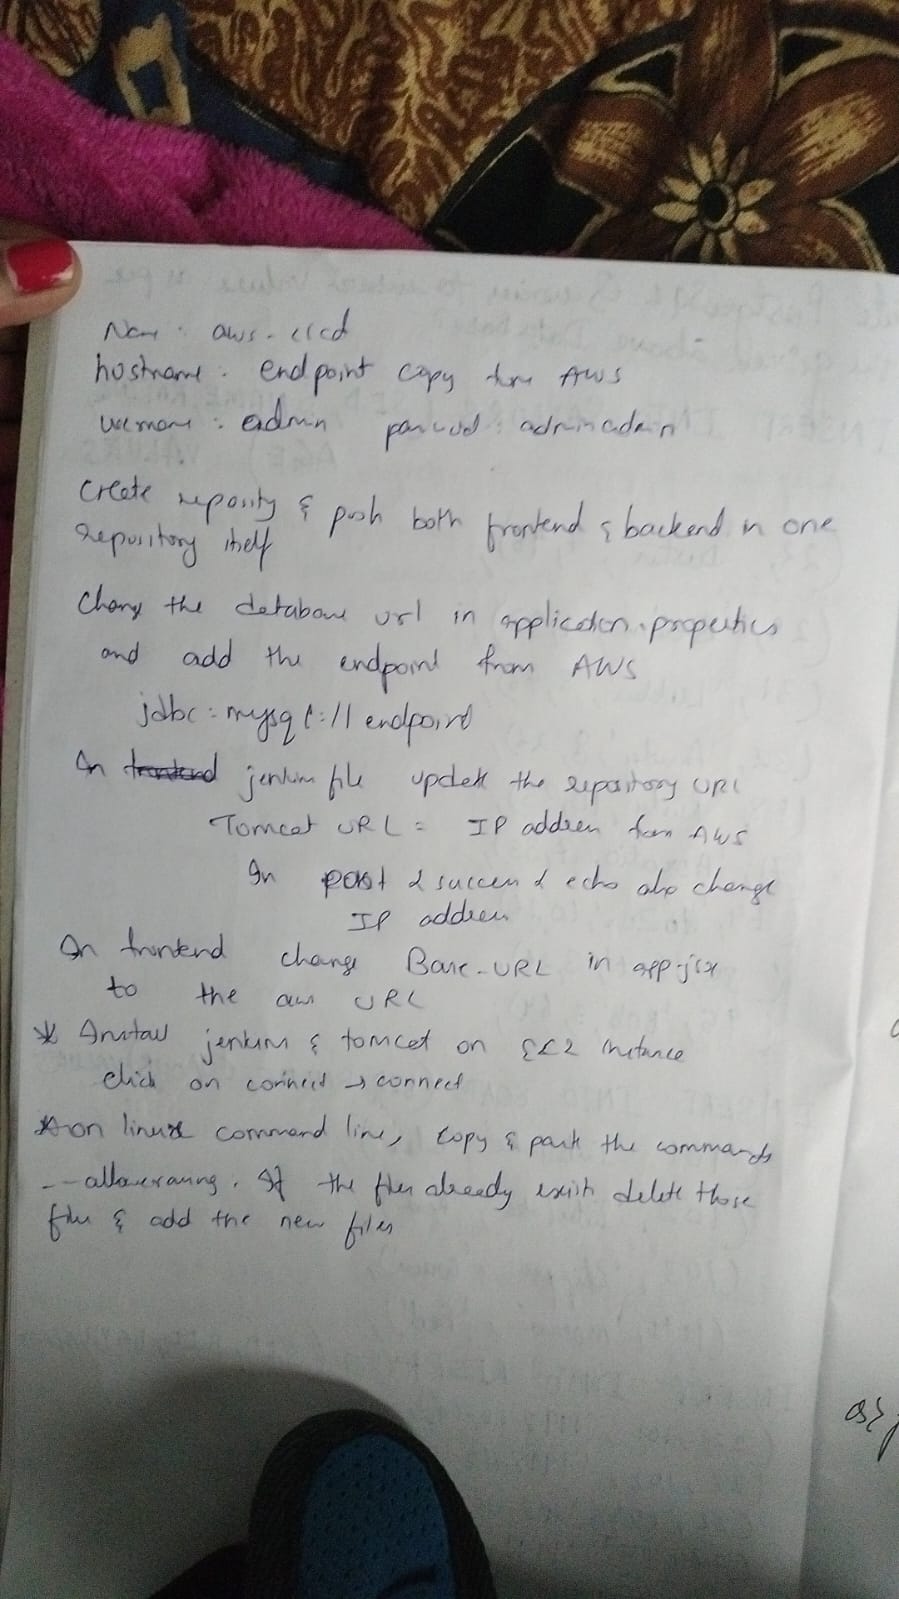 Name : aws-cicd
hostname : endpoint copy from AWS
username : admin password : adminadmin
create reposity & push both frontend & backend in one
repository itself
Change the database url in application.properties
and add the endpoint from AWS
jdbc:mysql://endpoint
In frontend jenkins file update the repository URL
Tomcat URL = IP address from AWS
In post & success & echo also change
IP address
In frontend change Base-URL in app.jsx
to the aws URL
* Install jenkins & tomcat on EC2 instance
click on connect → connect
* on linux command line, copy & paste the commands
If the files already exists delete those
files & add the new files